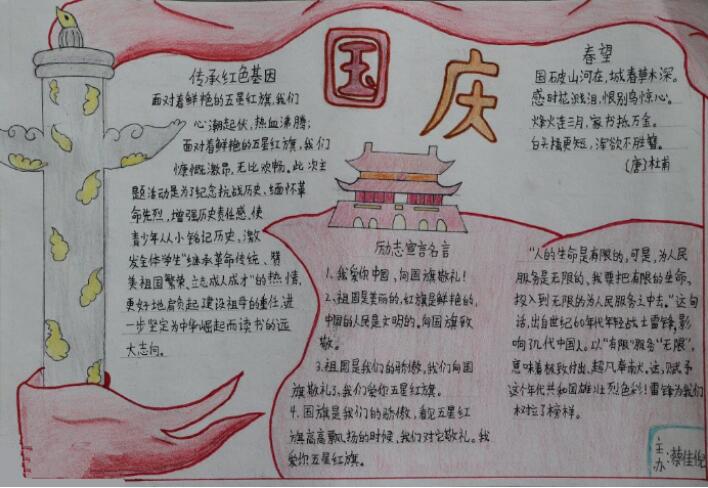 国庆
传承红色基因
面对着鲜艳的五星红旗,我们
心潮起伏,热血沸腾;
面对着鲜艳的五星红旗,我们
慷慨激昂,无比欢畅。此次主
题活动是为了纪念抗战历史、缅怀革
命先烈,增强历史责任感,使
青少年从小铭记历史、激
发全体学生"继承革命传统、赞
美祖国繁荣、立志成人成才"的热情,
更好地肩负起建设祖母的重任,进
一步坚定为中华崛起而读书的远
大志向。
春望
国破山河在,城春草木深。
感时花溅泪,恨别鸟惊心。
烽火连三月,家书抵万金。
白头搔更短,浑欲不胜簪。
(唐)杜甫
励志宣言名言
1、我爱你中国,向国旗敬礼!
2、祖国是美丽的,红旗是鲜艳的,
中国的人民是文明的。向国旗致
敬。
3.祖国是我们的骄傲,我们向国
旗敬礼了、我们爱你五星红旗。
4.国旗是我们的骄傲,看见五星红
旗高高飘扬的时候,我们对它敬礼。我
爱你五星红旗。
"人的生命是有限的,可是,为人民
服务是无限的,我要把有限的生命,
投入到无限的为人民服务之中去。"这句
话,出自世纪60年代年轻战士雷锋,影
响了几代中国人。以"有限"服务"无限",
意味着极致付出,超凡奉献,这,赋予
这个年代共和国雄壮烈色彩!雷锋为我们
树立了榜样。
主办:蔡佳倪